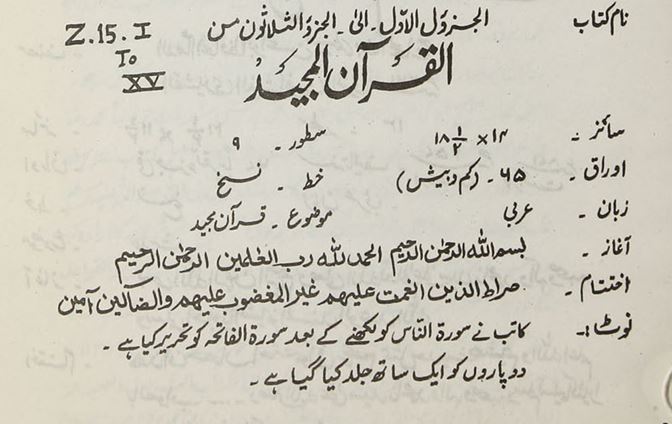 نام کتاب الجزول الاوّل۔ الیٰ۔ الجزو الثلاثون من
Z.15.I
To
XV
القرآن المجید
سائز - ۱۴ × ۱۸ ۱/۲ سطور - ۹
اوراق - ۶۵ - (کم و بیش) خط - نسخ
زبان - عربی موضوع - قرآن مجید
آغاز - بسم اللہ الرحمٰن الرحیم الحمد للہ رب العٰلمین الرحمٰن الرحیم
اختتام - صراط الذین انعمت علیہم غیر المغضوب علیہم والضالین آمین
نوٹ:- کاتب نے سورۃ النّاس کو لکھنے کے بعد سورۃ الفاتحہ کو تحریر کیا ہے -
دو پاروں کو ایک ساتھ جلد کیا گیا ہے -